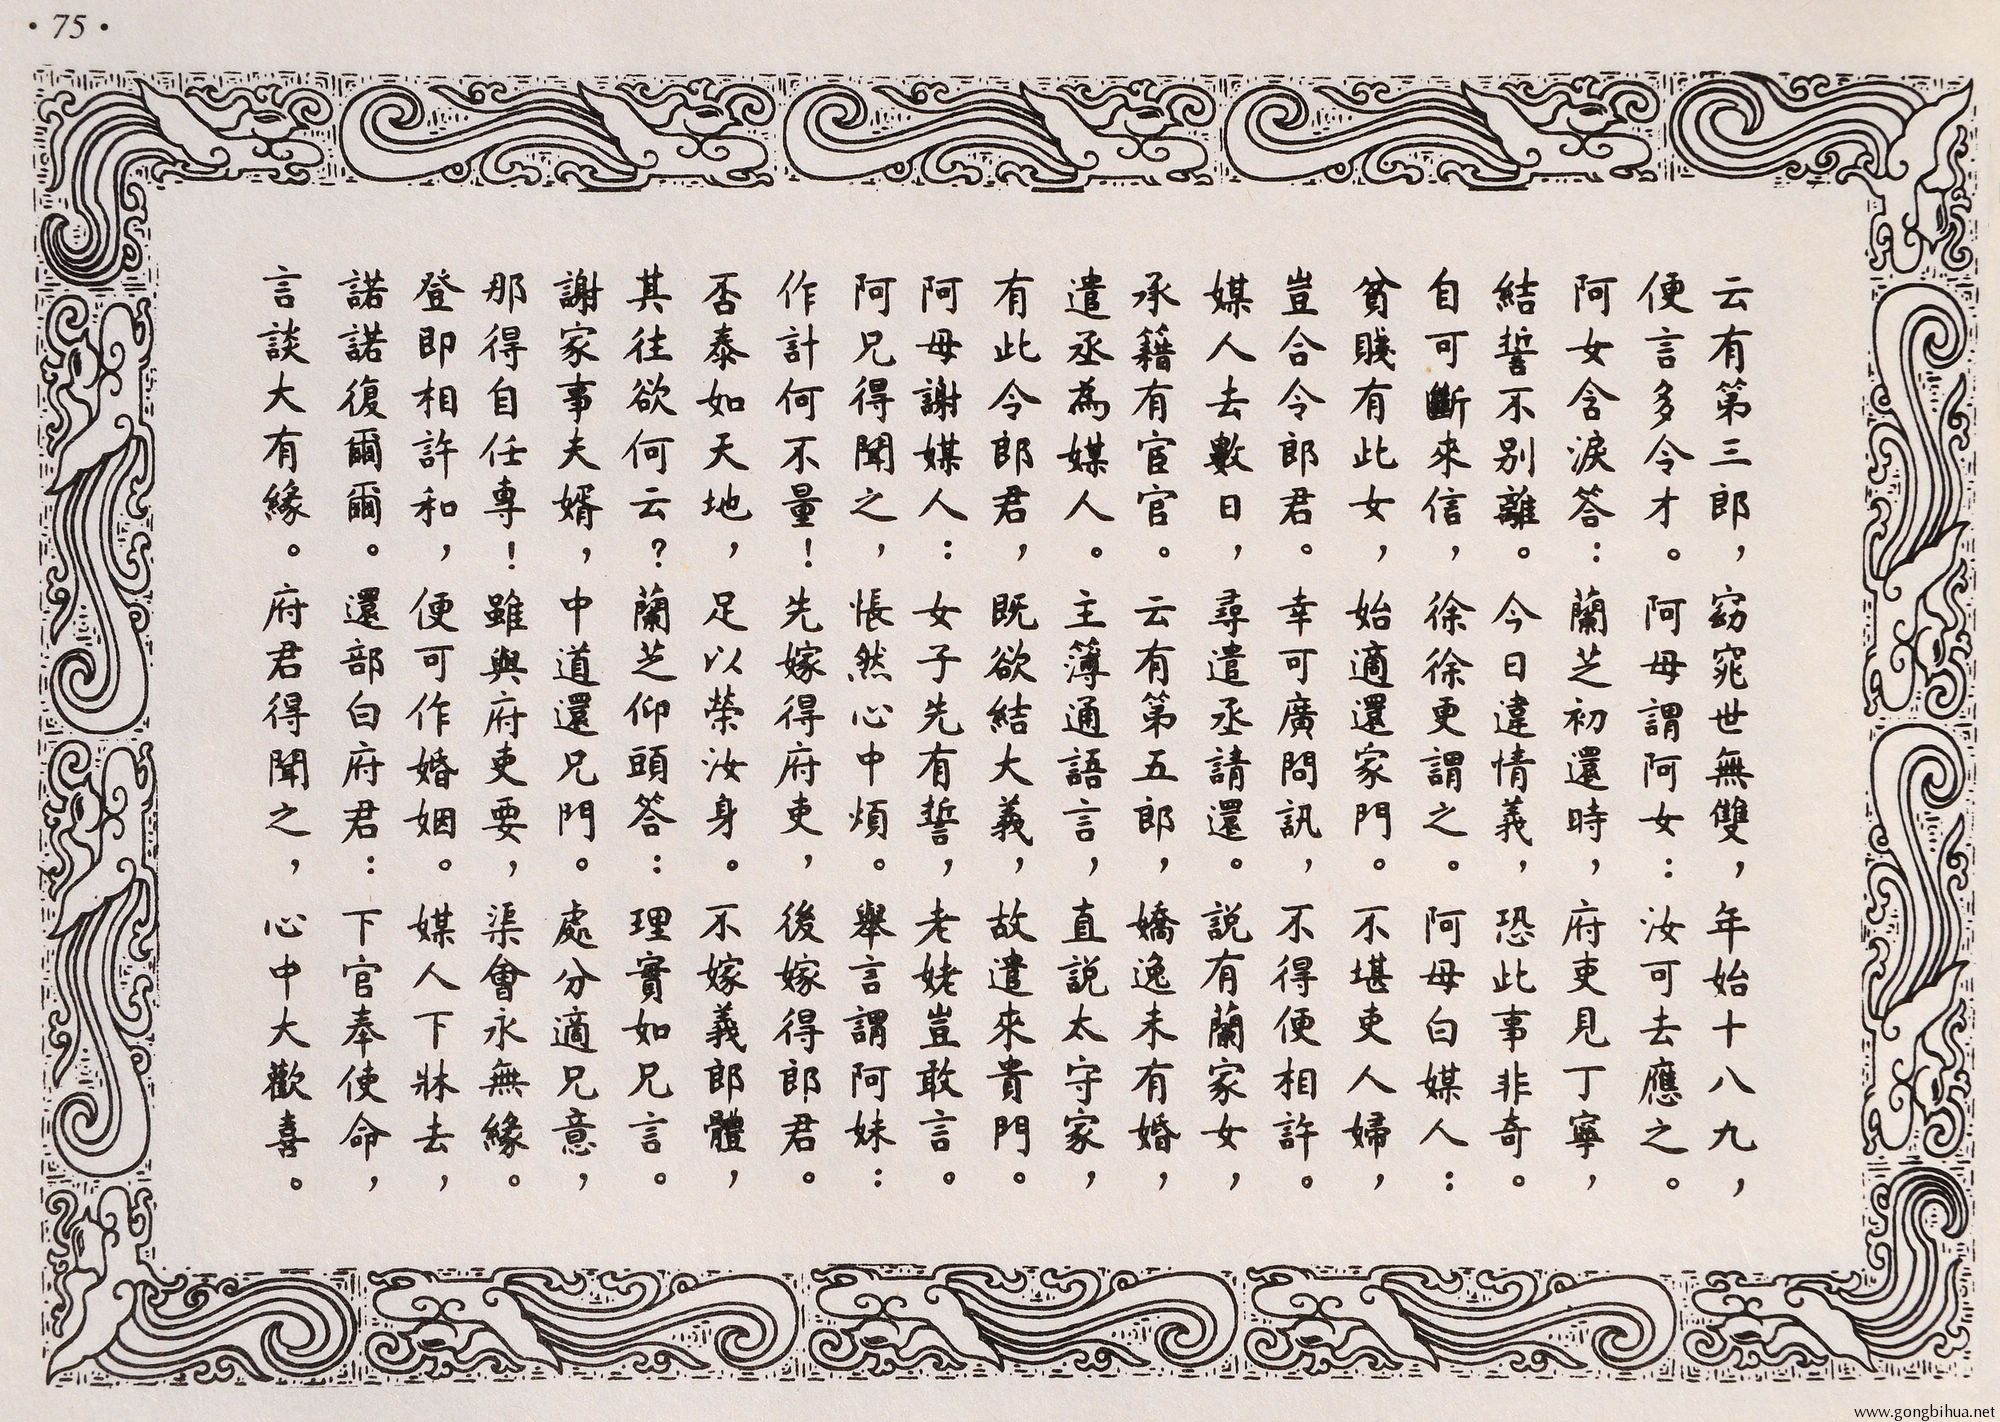 ·75·
云有第三郎，窈窕世無雙，年始十八九，
便言多令才。阿母謂阿女：汝可去應之。
阿女含淚答：蘭芝初還時，府吏見丁寧，
結誓不别離。今日違情義，恐此事非奇。
自可斷來信，徐徐更謂之。阿母白媒人：
貧賤有此女，始適還家門。不堪吏人婦，
豈合令郎君。幸可廣問訊，不得便相許。
媒人去數日，尋遣丞請還。説有蘭家女，
承籍有宦官。云有第五郎，嬌逸未有婚，
遣丞為媒人。主簿通語言，直説太守家，
有此令郎君，既欲結大義，故遣來貴門。
阿母謝媒人：女子先有誓，老姥豈敢言。
阿兄得聞之，悵然心中煩。舉言謂阿妹：
作計何不量！先嫁得府吏，後嫁得郎君。
否泰如天地，足以榮汝身。不嫁義郎體，
其往欲何云？蘭芝仰頭答：理實如兄言。
謝家事夫婿，中道還兄門。處分適兄意，
那得自任專！雖與府吏要，渠會永無緣。
登即相許和，便可作婚姻。媒人下牀去，
諾諾復爾爾。還部白府君：下官奉使命，
言談大有緣。府君得聞之，心中大歡喜。
www.gongbihua.net